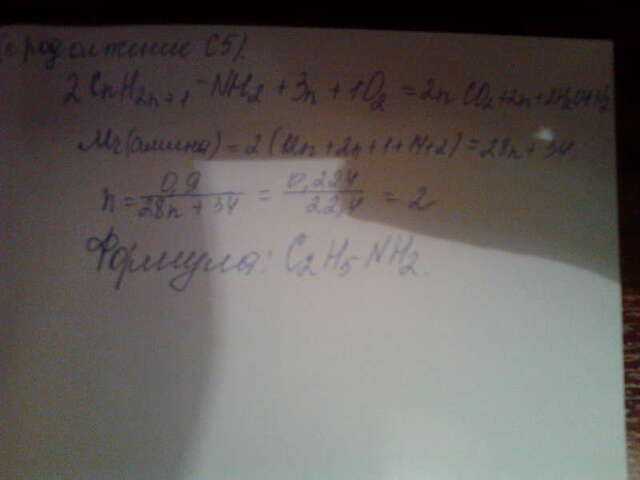 (продолжение C5).
2CnH2n+1-NH2 + 3n + 1O2 = 2n CO2 + 2n +
Mr(амина) = 2 (12n + 2n + 1 + 14 + 2) = 28n + 34
n = 0,9 / 28n + 34 = 0,224 / 22,4 = 2
Формула: C2H5NH2.